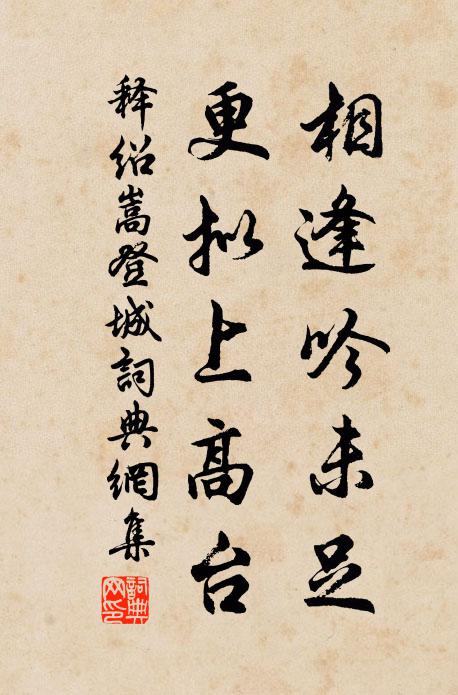 相逢吟未足
更拟上高台
释绍嵩登城詞典網集
詞典
网印